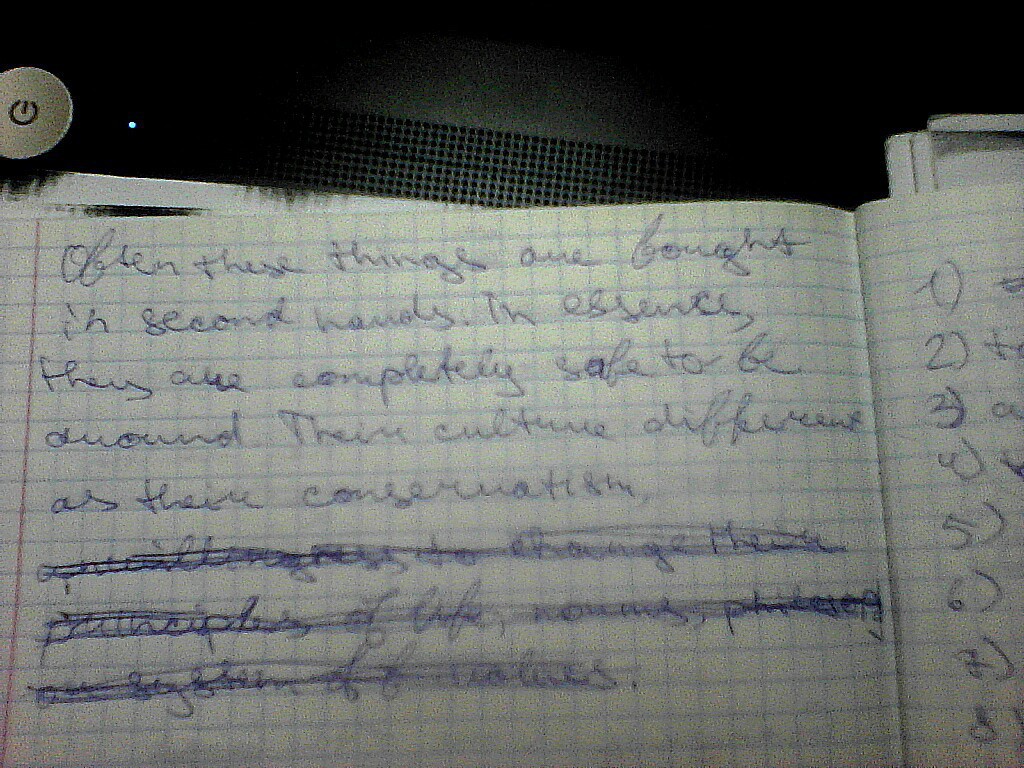 Often these things are bought
in second hands. In essence,
they are completely safe to be
around. Their culture different
as their conservatism,
unwillingness to change their
principles of life, norms,
or system of values.
1)
2) to
3) a
4)
5)
6)
7)
8